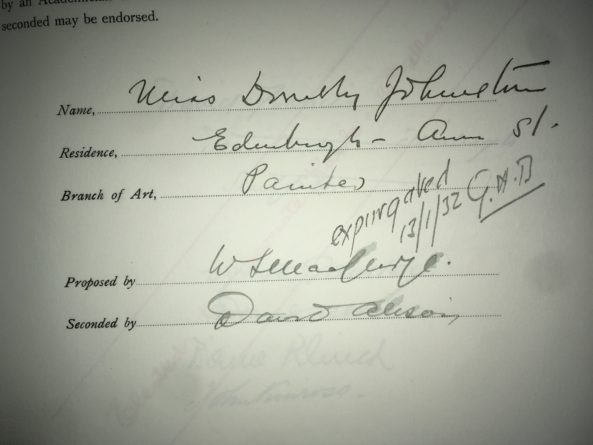 by an Academician
seconded may be endorsed.
Name, Miss Dorothy Johnstone
Residence, Edinburgh - Ann St.
Branch of Art, Painter
expurgated
13/1/32 G.H.B
Proposed by W S MacGeorge.
Seconded by David Alison